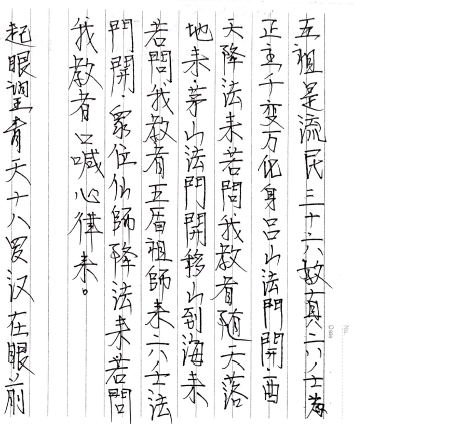 五祖是流民三十六教真六八士為
正主千变万化身吕山法門開酉
天降法来若問我教者随天落
地来茅山法門開移山到海来
若問我教者五眉祖師来六八士法
門開眾位仙師降法来若問
我教者口喊心律来。
起眼望青天十八罗汉在眼前
No.
Date